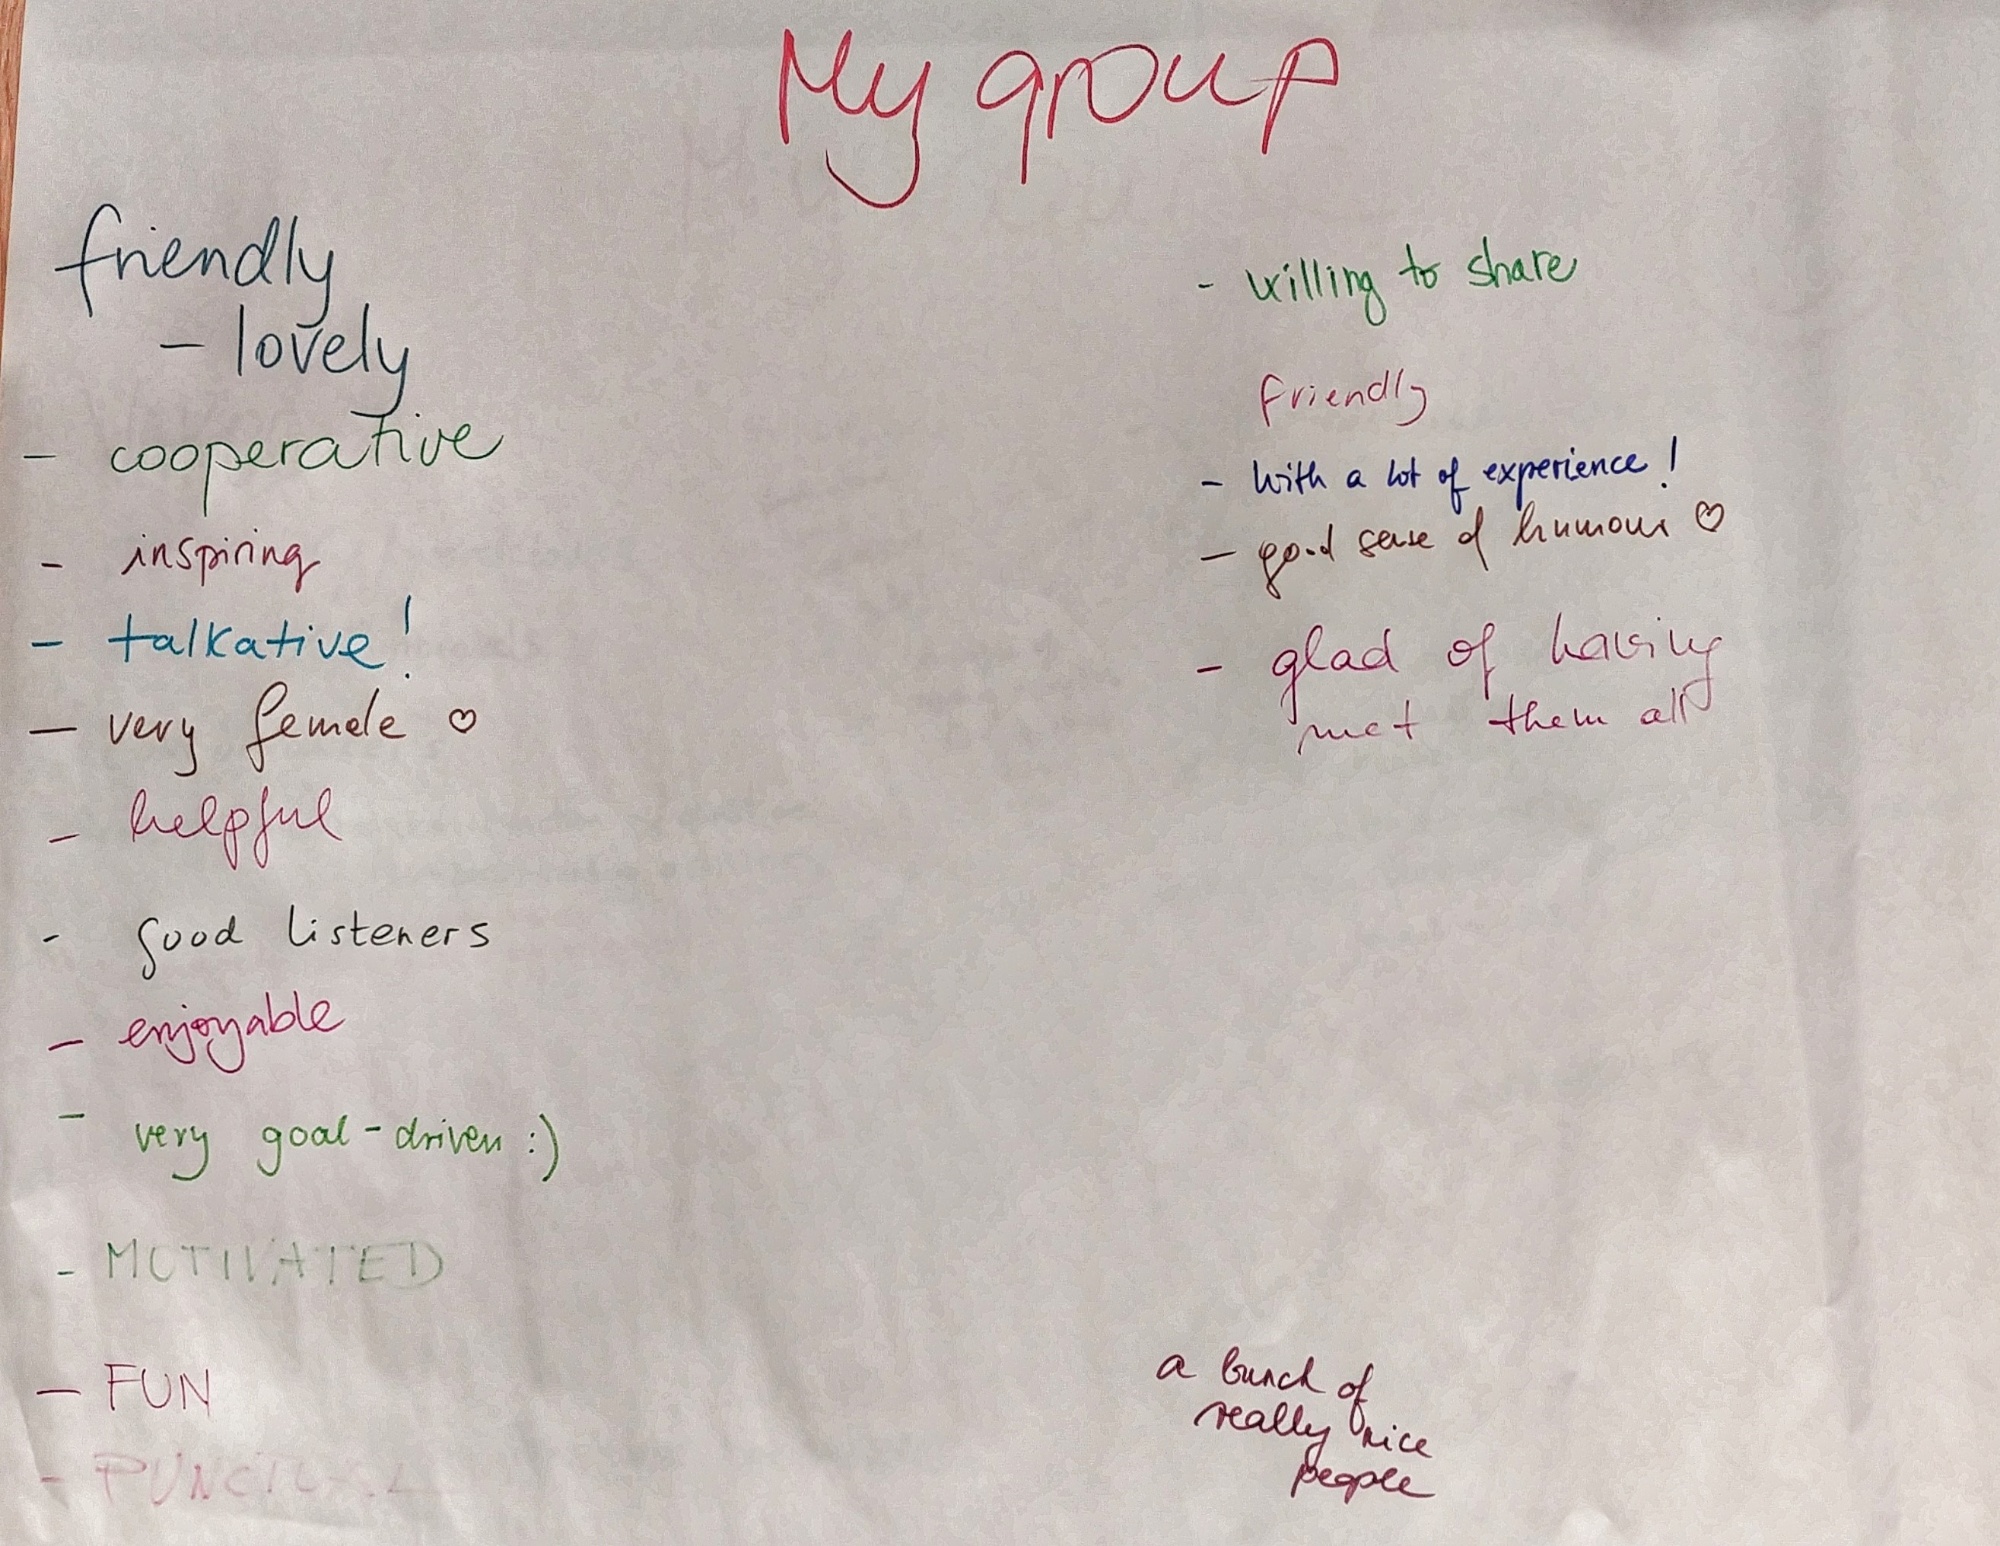 My group
friendly
- lovely
- cooperative
- inspiring
- talkative!
- very female ♡
- helpful
- good listeners
- enjoyable
- very goal-driven :)
- MOTIVATED
- FUN
- PUNCTUAL
- willing to share
friendly
- with a lot of experience!
- good sense of humour ♡
- glad of having
met them all
a bunch of
really nice
people